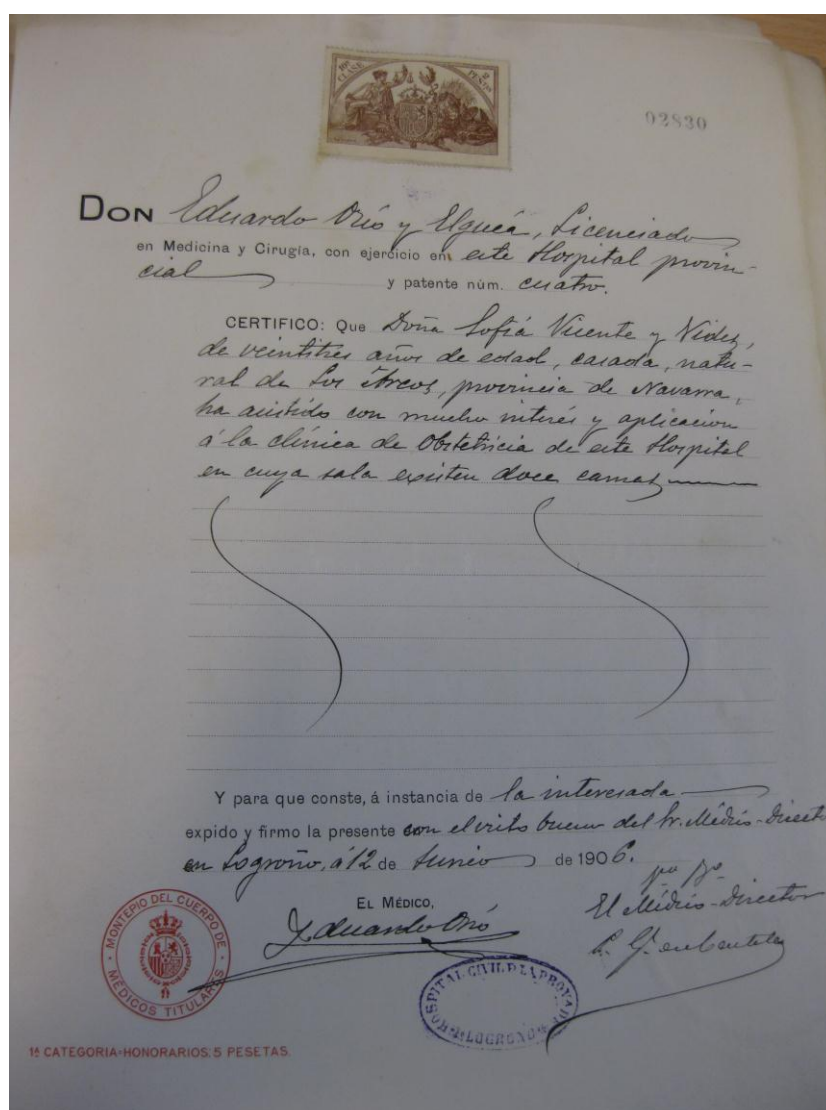 10ª CLASE 2 PESETAS
02830
DON Eduardo Orío y Elguea, Licenciado
en Medicina y Cirugía, con ejercicio en este Hospital provin-
cial y patente núm. cuatro.
CERTIFICO: Que Doña Sofía Vicente y
de veintitres años de edad, casada, natu-
ral de Los Arcos, provincia de Navarra,
ha asistido con mucho interés y aplicación
á la clínica de Obstetricia de este Hospital
en cuya sala existen doce camas
Y para que conste, á instancia de la interesada
expido y firmo la presente con el visto bueno del Sr. Médico-Directo
en Logroño, á 12 de Junio de 1906.
Vº Bº
EL MÉDICO,
El Médico-Director
Eduardo Orío
MONTEPIO DEL CUERPO DE MÉDICOS TITULARES
HOSPITAL CIVIL D LA PROVA DE LOGROÑO
1ª CATEGORIA-HONORARIOS: 5 PESETAS.